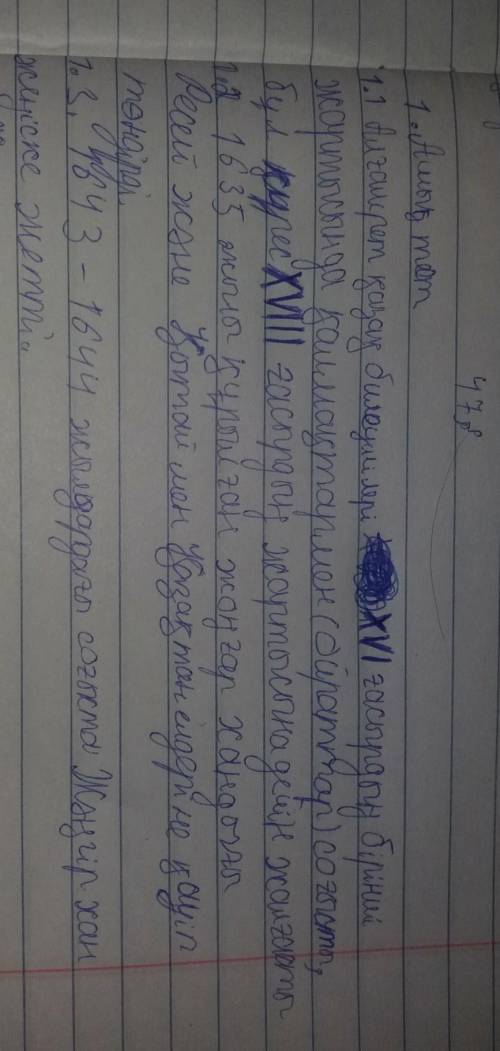 47,8
1. Ашық тест
1.1 Алғаш рет қазақ билеушілері XVI ғасырдың бірінші
жартысында қалмақтармен (ойраттар) соғысты,
бұл күрес XVIII ғасрдың жартысына дейін жалғасты
1.2 1635 жылы құрылған жоңғар хандығы
Ресей және Қытай мен Қазақстан елдеріне қауіп
төндірді.
1.3. 1643-1644 жылдардағы соғыста Жәңгір хан
жеңіске жетті..